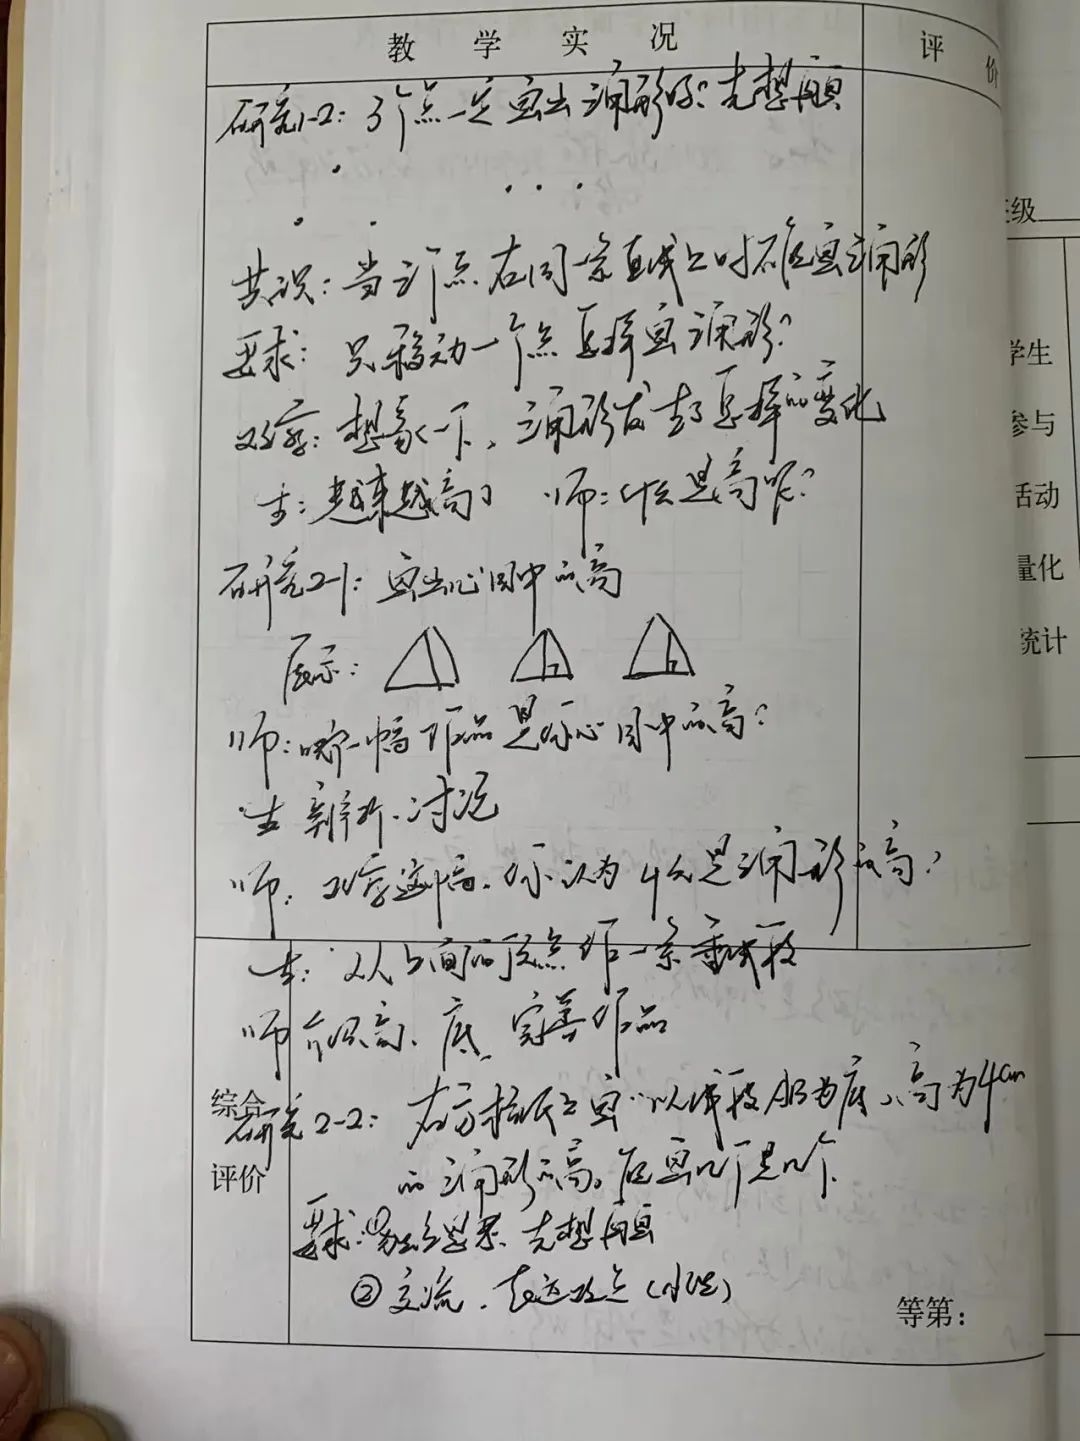 教 学 实 况
评 价
研究1-2：3个点一定画出三角形吗？先想再画
共识：当三个点在同一条直线上时不能画三角形
要求：只移动一个点怎样画三角形？
观察：想象一下，三角形发生了怎样的变化
生：越来越高了 师：什么是高呢？
研究2-1：画出心目中的高
展示：
师：哪一幅作品是你心目中的高？
生 辨析、讨论
师：观察这个高，你认为什么是三角形的高？
生：从上面的顶点作一条垂线段
师 介绍高、底、完善作品
研究2-2：在方格纸上画“以线段AB为底，高为4cm
的三角形的高。能画几个是几个
要求：①独立思考、先想再画
②交流、表达观点（小组）
综合
评价
等第：
班级
学生
参与
活动
量化
统计